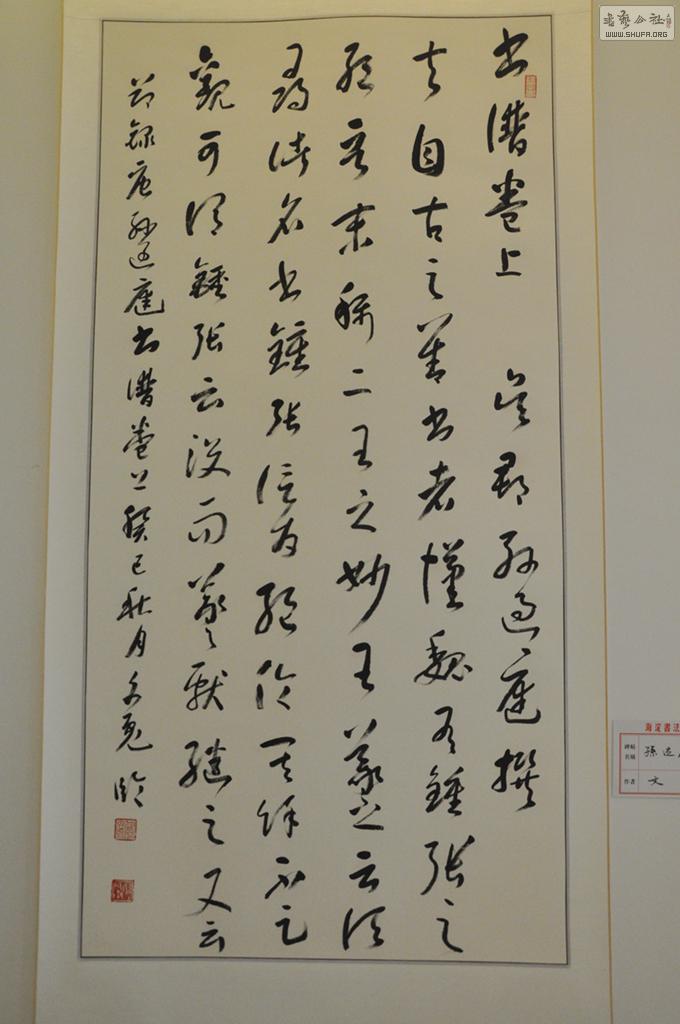 書譜卷上 吳郡孫過庭撰
夫自古之善書者漢魏有鍾張之
絕晉末稱二王之妙王羲之云頃
尋諸名書鍾張信為絕倫其餘不足
觀可謂鍾張云沒而羲獻繼之又云
節錄唐孫過庭書譜卷上癸巳秋月文臨
書藝公社
WWW.SHUFA.ORG
海淀書法
碑帖名稱 孫過
作者 文